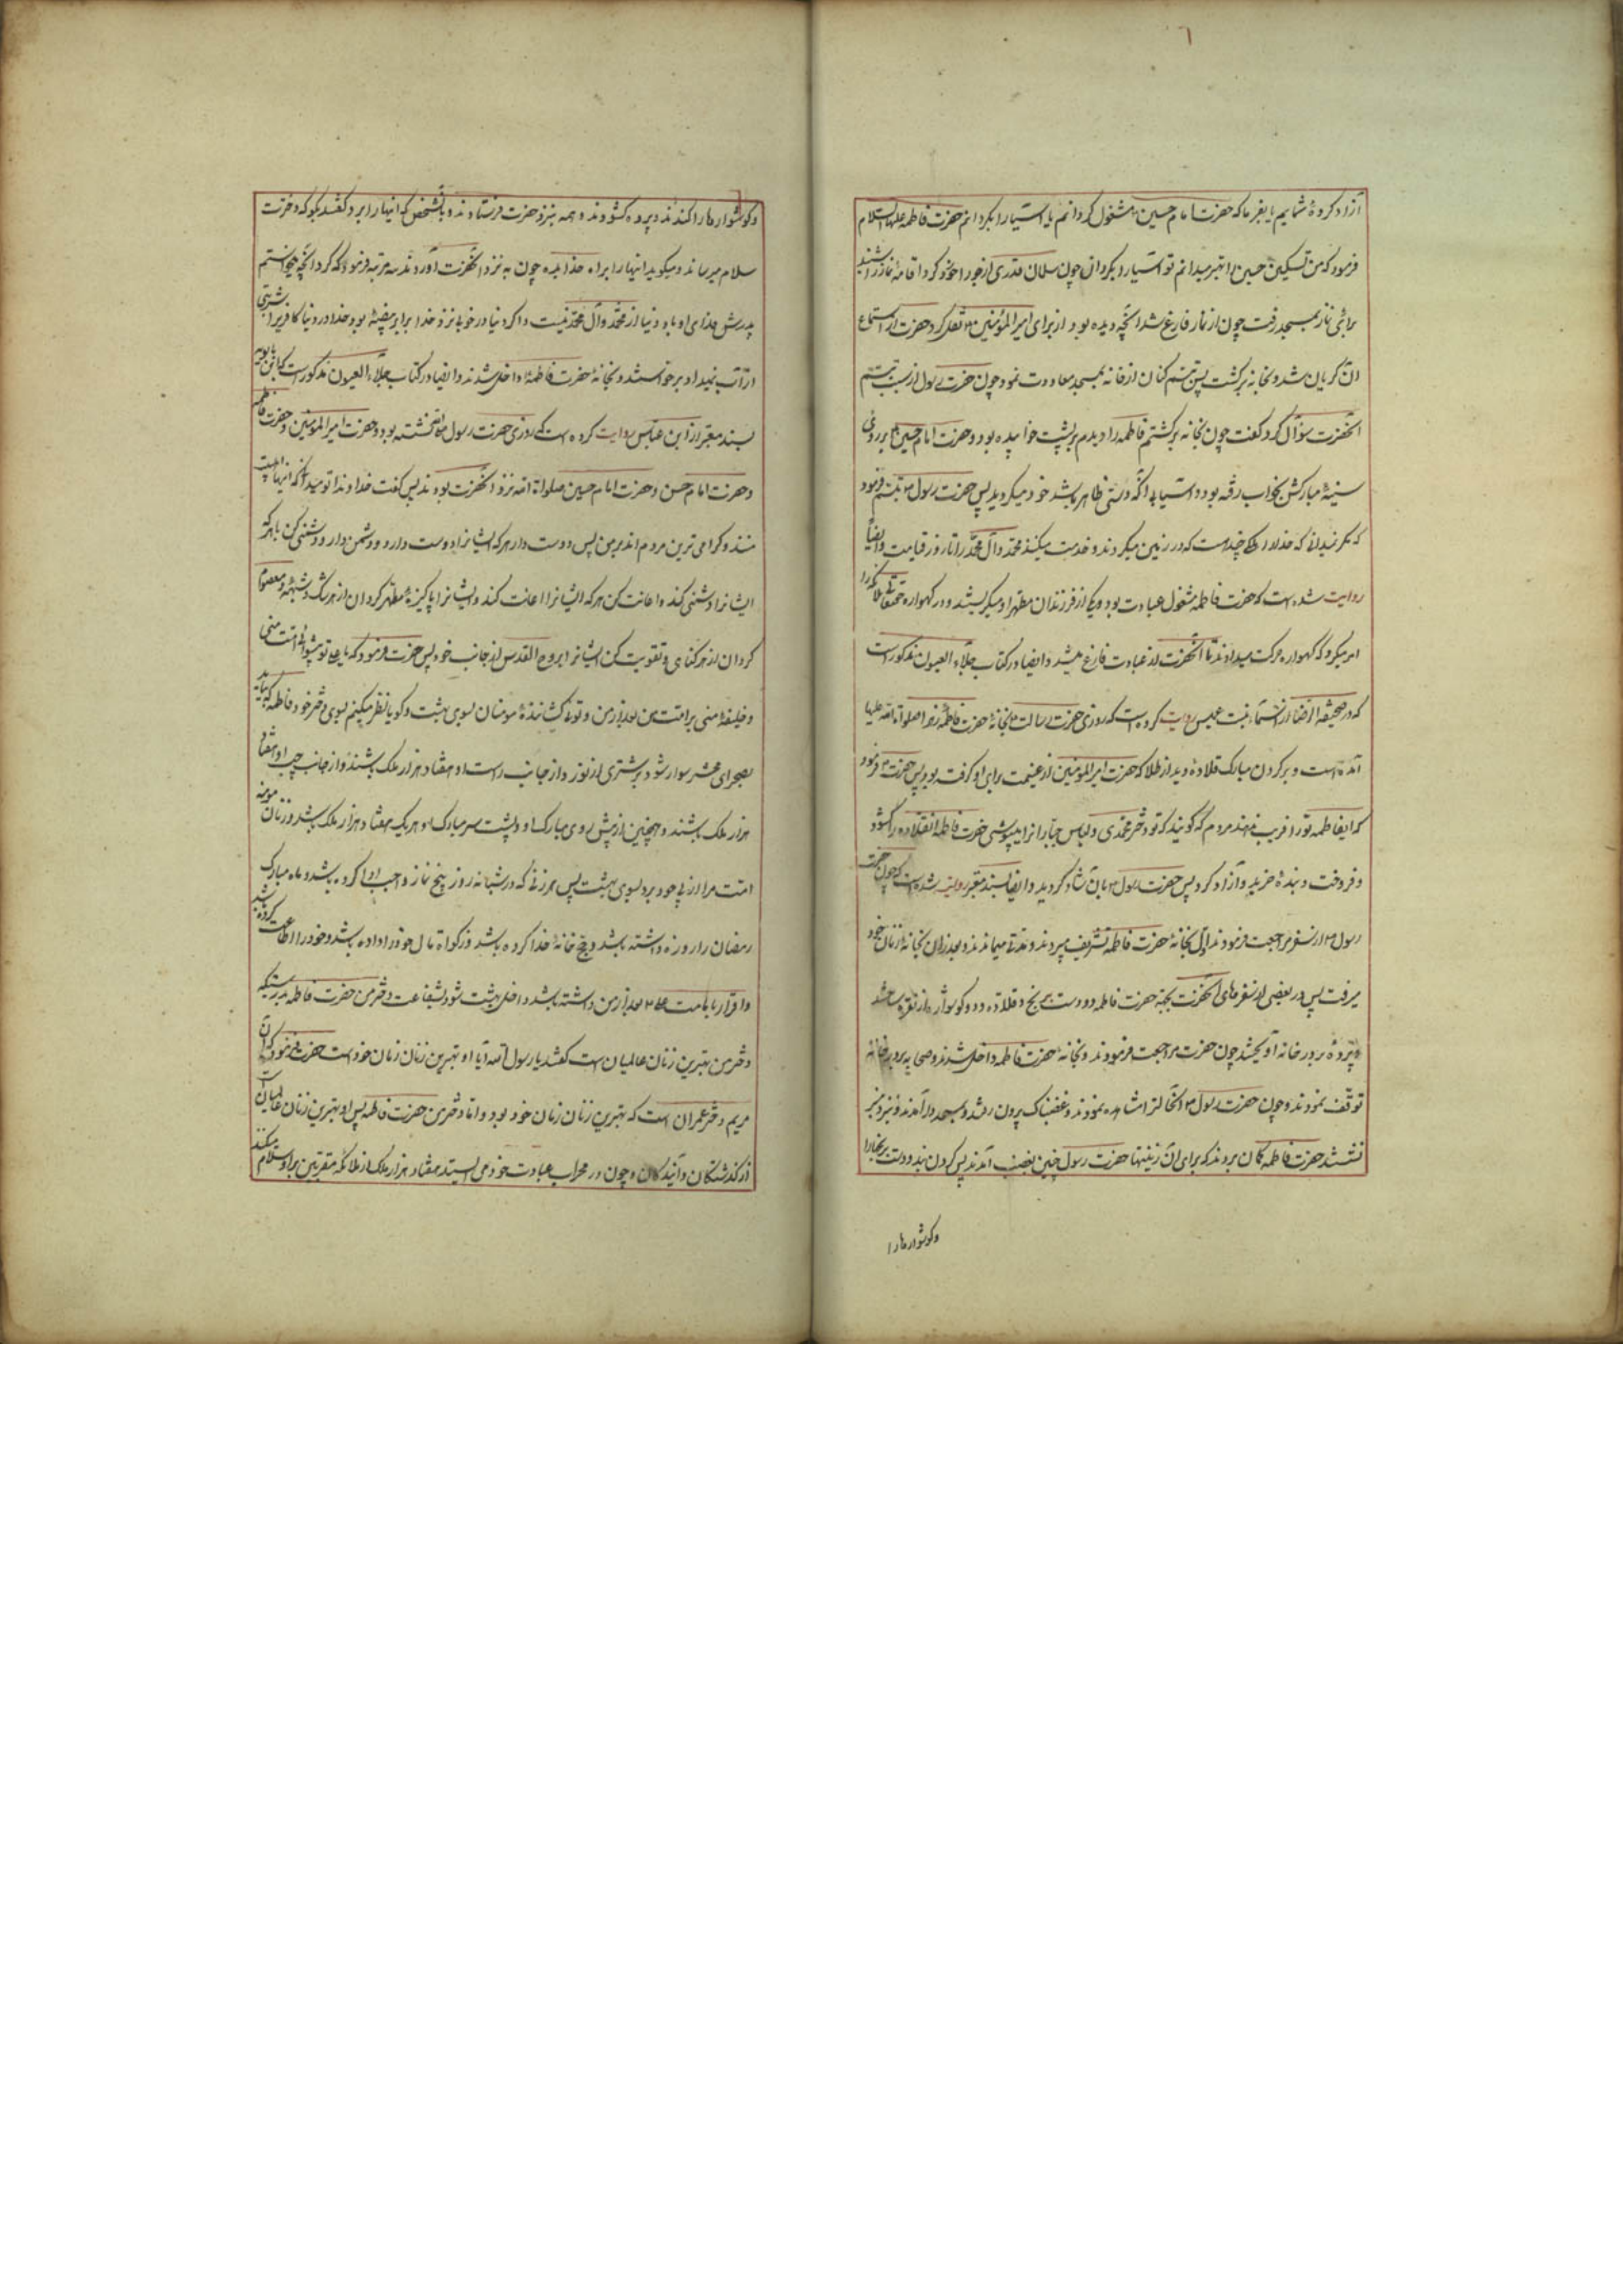 ٦
آزاد کردهٔ شمایم یا بفرما که حضرت امام حسین را مشغول گردانم یا آسیا را بگردانم حضرت فاطمه علیها السلام
فرمود که من تسکین حسین را بهتر میدانم تو آسیا را بگردان چون سلمان قدری از جو را خورد کرد اقامهٔ نماز را شنید
برای نماز بمسجد رفت چون از نماز فارغ شد آنچه دیده بود از برای امیر المؤمنین نقل کرد حضرت از استماع
آن گریان شد و بخانه برگشت پس تبسم کنان از خانه بمسجد معاودت نمود چون حضرت رسول از سبب تبسم
آنحضرت سؤال کرد گفت چون بخانه برگشتم فاطمه را دیدم بر پشت خوابیده بود و حضرت امام حسین بر روی
سینهٔ مبارکش بخواب رفته بود و آسیا بی آنکه دستی ظاهر باشد خود میگردید پس حضرت رسول تبسم فرمود
که مگر نمیدانی که خدا را ملکی چند است که در زمین میگردند و خدمت میکنند محمد و آل محمد را تا روز قیامت و ایضاً
روایت شده است که حضرت فاطمه مشغول عبادت بود و یکی از فرزندان مطهر او میگریست و در گهواره حقتعالی ملائکه را
امر میکرد که گهواره حرکت میدادند تا آنحضرت از عبادت فارغ میشد و ایضا در کتاب جلاء العیون مذکور است
که در صحیفة الرضا از اسماء بنت عمیس روایت کرده است که روزی حضرت رسالت بخانهٔ حضرت فاطمه زهرا صلوات الله علیها
آمده است و بر گردن مبارک قلاده دید از طلا که حضرت امیر المؤمنین از غنیمت برای او گرفته بود پس حضرت فرمود
که ای فاطمه تو را فریب ندهند مردم که گویند که تو دختر محمدی و لباس جباران را بپوشی حضرت فاطمه آنقلاده را گشود
و فروخت و بندهٔ خرید و آزاد کرد پس حضرت رسول بآن شاد گردید و ایضا بسند معتبر روایت شده است که چون حضرت
رسول از سفر مراجعت فرمودند اول بخانهٔ حضرت فاطمه تشریف میبردند و مدتی میماندند و بعد از آن بخانهٔ زنان خود
میرفت پس در بعضی از سفرهای آنحضرت بجهة حضرت فاطمه دو دست برنج و قلاده و دو گوشواره از نقره ساختند
و پردهٔ بر در خانه آویختند چون حضرت مراجعت فرمودند و بخانهٔ حضرت فاطمه داخل شدند و صحابه بر در خانه
توقف نمودند و چون حضرت رسول آنحال را مشاهده نمودند و غضبناک بیرون رفتند و بمسجد در آمدند و نزد منبر
نشستند حضرت فاطمه گمان بردند که برای آن زینتها حضرت رسول چنین بغضب آمدند پس گردن بند و دست برنجها را
و گوشوارها را
و گوشوارها را کندند و پرده گشودند و همه بنزد حضرت فرستادند و بآنشخص که اینها را برد گفتند بگو که دخترت
سلام میرساند و میگوید اینها را براه خدا بده چون به نزد آنحضرت آوردند سه مرتبه فرمود که کرد آنچه میخواستم
پدرش فدای او باد دنیا از محمد و آل محمد نیست و اگر دنیا در خوبی نزد خدا برابر پشهٔ بود خدا در دنیا کافر را شربتی
از آب نمیداد برخواستند و بخانهٔ حضرت فاطمه داخل شدند و ایضا در کتاب جلاء العیون مذکور است که ابن بابویه
بسند معتبر از ابن عباس روایت کرده است که روزی حضرت رسول نشسته بود و حضرت امیر المؤمنین و حضرت فاطمه
و حضرت امام حسن و حضرت امام حسین صلوات الله نزد آنحضرت بودند پس گفت خداوندا تو میدانی که اینها اهلبیت
منند و گرامی ترین مردم اند بر من پس دوست دار هر که ایشانرا دوست دارد و دشمن دار و دشمنی کن با هر که
ایشانرا دشمنی کند و اعانت کن هر که ایشانرا اعانت کند و ایشانرا پاکیزه و مطهر گردان از هر شک و شبهه و معصوم
گردان از هر گناهی و تقویت کن ایشانرا بروح القدس از جانب خود پس حضرت فرمود که یا علی تو پیشوای امت منی
و خلیفهٔ منی بر امت من بعد از من و توئی کشانندهٔ مومنان بسوی بهشت و گویا نظر میکنم بسوی دختر خود فاطمه که بیاید
بصحرای محشر سوار شود بر شتری از نور و از جانب راست او هفتاد هزار ملک باشند و از جانب چپ او هفتاد
هزار ملک باشند و همچنین از پیش روی مبارک او و پشت سر مبارک او هر یک هفتاد هزار ملک باشند و زنان مومنه
امت مرا از پی خود برد بسوی بهشت پس هر زنی که در شبانه روز پنج نماز واجب ادا کرده باشد و ماه مبارک
رمضان را روزه داشته باشد و حج خانهٔ خدا کرده باشد و زکواة مال خود را داده باشد و خود را اطاعت کرده باشد
و اقرار بامامت علی بعد از من داشته باشد داخل بهشت شود بشفاعت دختر من حضرت فاطمه بدرستیکه
دختر من بهترین زنان عالمیان است گفتند یا رسول الله آیا او بهترین زنان زمان خود است حضرت فرمود که آن
مریم دختر عمران است که بهترین زنان زمان خود بود و اما دختر من حضرت فاطمه پس او بهترین زنان عالمیان است
از گذشتگان و آیندگان و چون در محراب عبادت خود می ایستد هفتاد هزار ملک از ملائکه مقربین بر او سلام میکنند